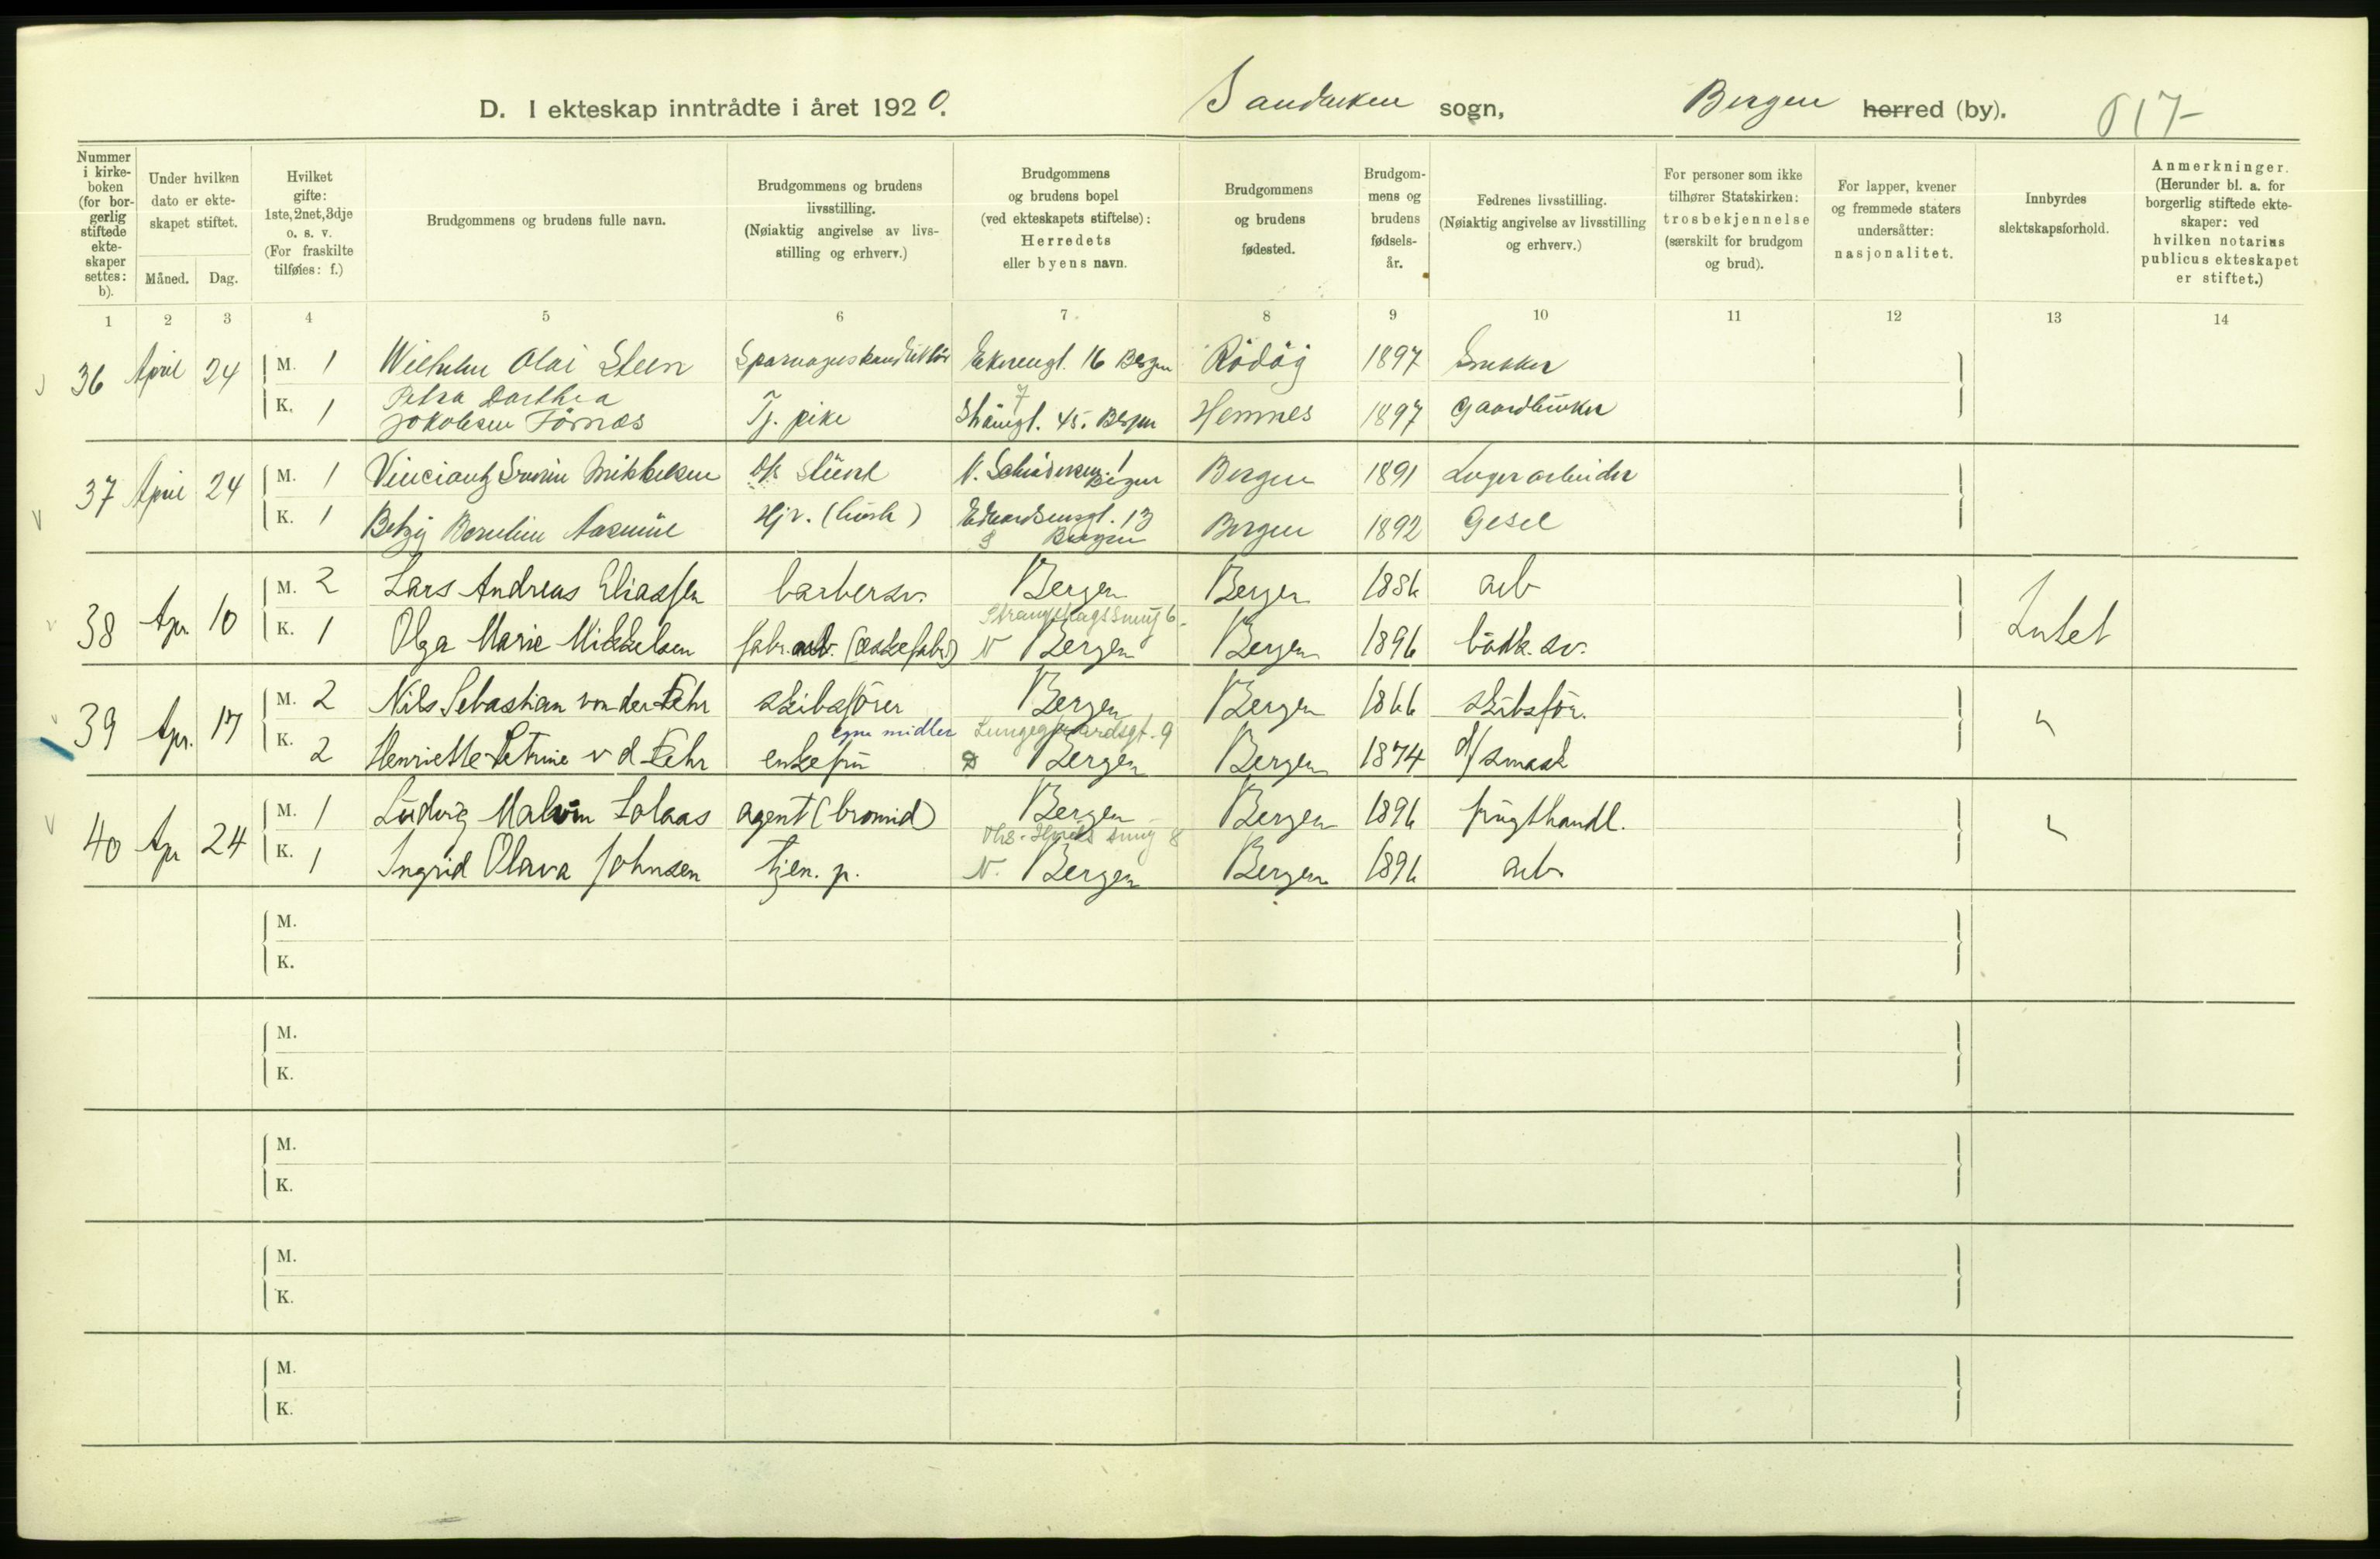 D. I ekteskap inntrådte i året 1920. Sandviken sogn, Bergen herred (by). 617
Nummer i kirke-boken (for bor-gerlig stiftede ekte-skaper settes: b).
Under hvilken dato er ekte-skapet stiftet.
Måned. Dag.
Hvilket gifte: 1ste, 2net, 3dje o. s. v. (For fraskilte tilføies: f.)
Brudgommens og brudens fulle navn.
Brudgommens og brudens livsstilling. (Nøiaktig angivelse av livs-stilling og erhverv.)
Brudgommens og brudens bopel (ved ekteskapets stiftelse): Herredets eller byens navn.
Brudgommens og brudens fødested.
Brudgom-mens og brudens fødsels-år.
Fedrenes livsstilling. (Nøiaktig angivelse av livsstilling og erhverv.)
For personer som ikke tilhører Statskirken: trosbekjennelse (særskilt for brudgom og brud).
For lapper, kvener og fremmede staters undersåtter: nasjonalitet.
Innbyrdes slektskapsforhold.
Anmerkninger. (Herunder bl. a. for borgerlig stiftede ekte-skaper: ved hvilken notarius publicus ekteskapet er stiftet.)
1 2 3 4 5 6 7 8 9 10 11 12 13 14
36 April 24 M. 1 Wilhelm Olai Steen Sporvognskonduktør Ekrengt. 16 Bergen Rödöy 1897 Snekker
K. 1 Petra Dorthea Jakobsen Förnes Tj. pike 45. Bergen Hemnes 1897 Gaardbruker
37 April 24 M. 1 Mikkelsen Bergen Bergen 1891 Lagerarbeider
K. 1 Betzy Hjv. (hush) Edvardsensgt. 13 S Bergen Bergen 1892 Gesel
38 Apr. 10 M. 2 Lars Andreas Eliassen barbersv. Bergen Bergen 1886 arb
K. 1 Olga Marie Mikkelsen fabr.arb. (æskefabr.) Strangehagssmug 6 N Bergen Bergen 1896 bödk. sv. Intet
39 Apr. 17 M. 2 Nils Sebastian von der Fehr skibsförer Bergen Bergen 1866 skibsför.
K. 2 Henriette Petrine v d Fehr enkefru egne midler Lungegaardsgt. 9 Bergen Bergen 1874 d/smask "
40 Apr 24 M. 1 Ludvig Malvin Lolaas agent (bromid) Bergen Bergen 1896 frugthandl.
K. 1 Ingrid Olava Johnsen tjen. p. smug 8 N. Bergen Bergen 1896 arb. "
M.
K.
M.
K.
M.
K.
M.
K.
M.
K.